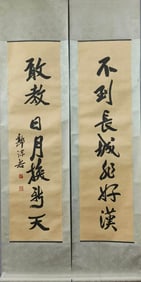 不到長城非好漢
敢教日月換新天
郭沫若